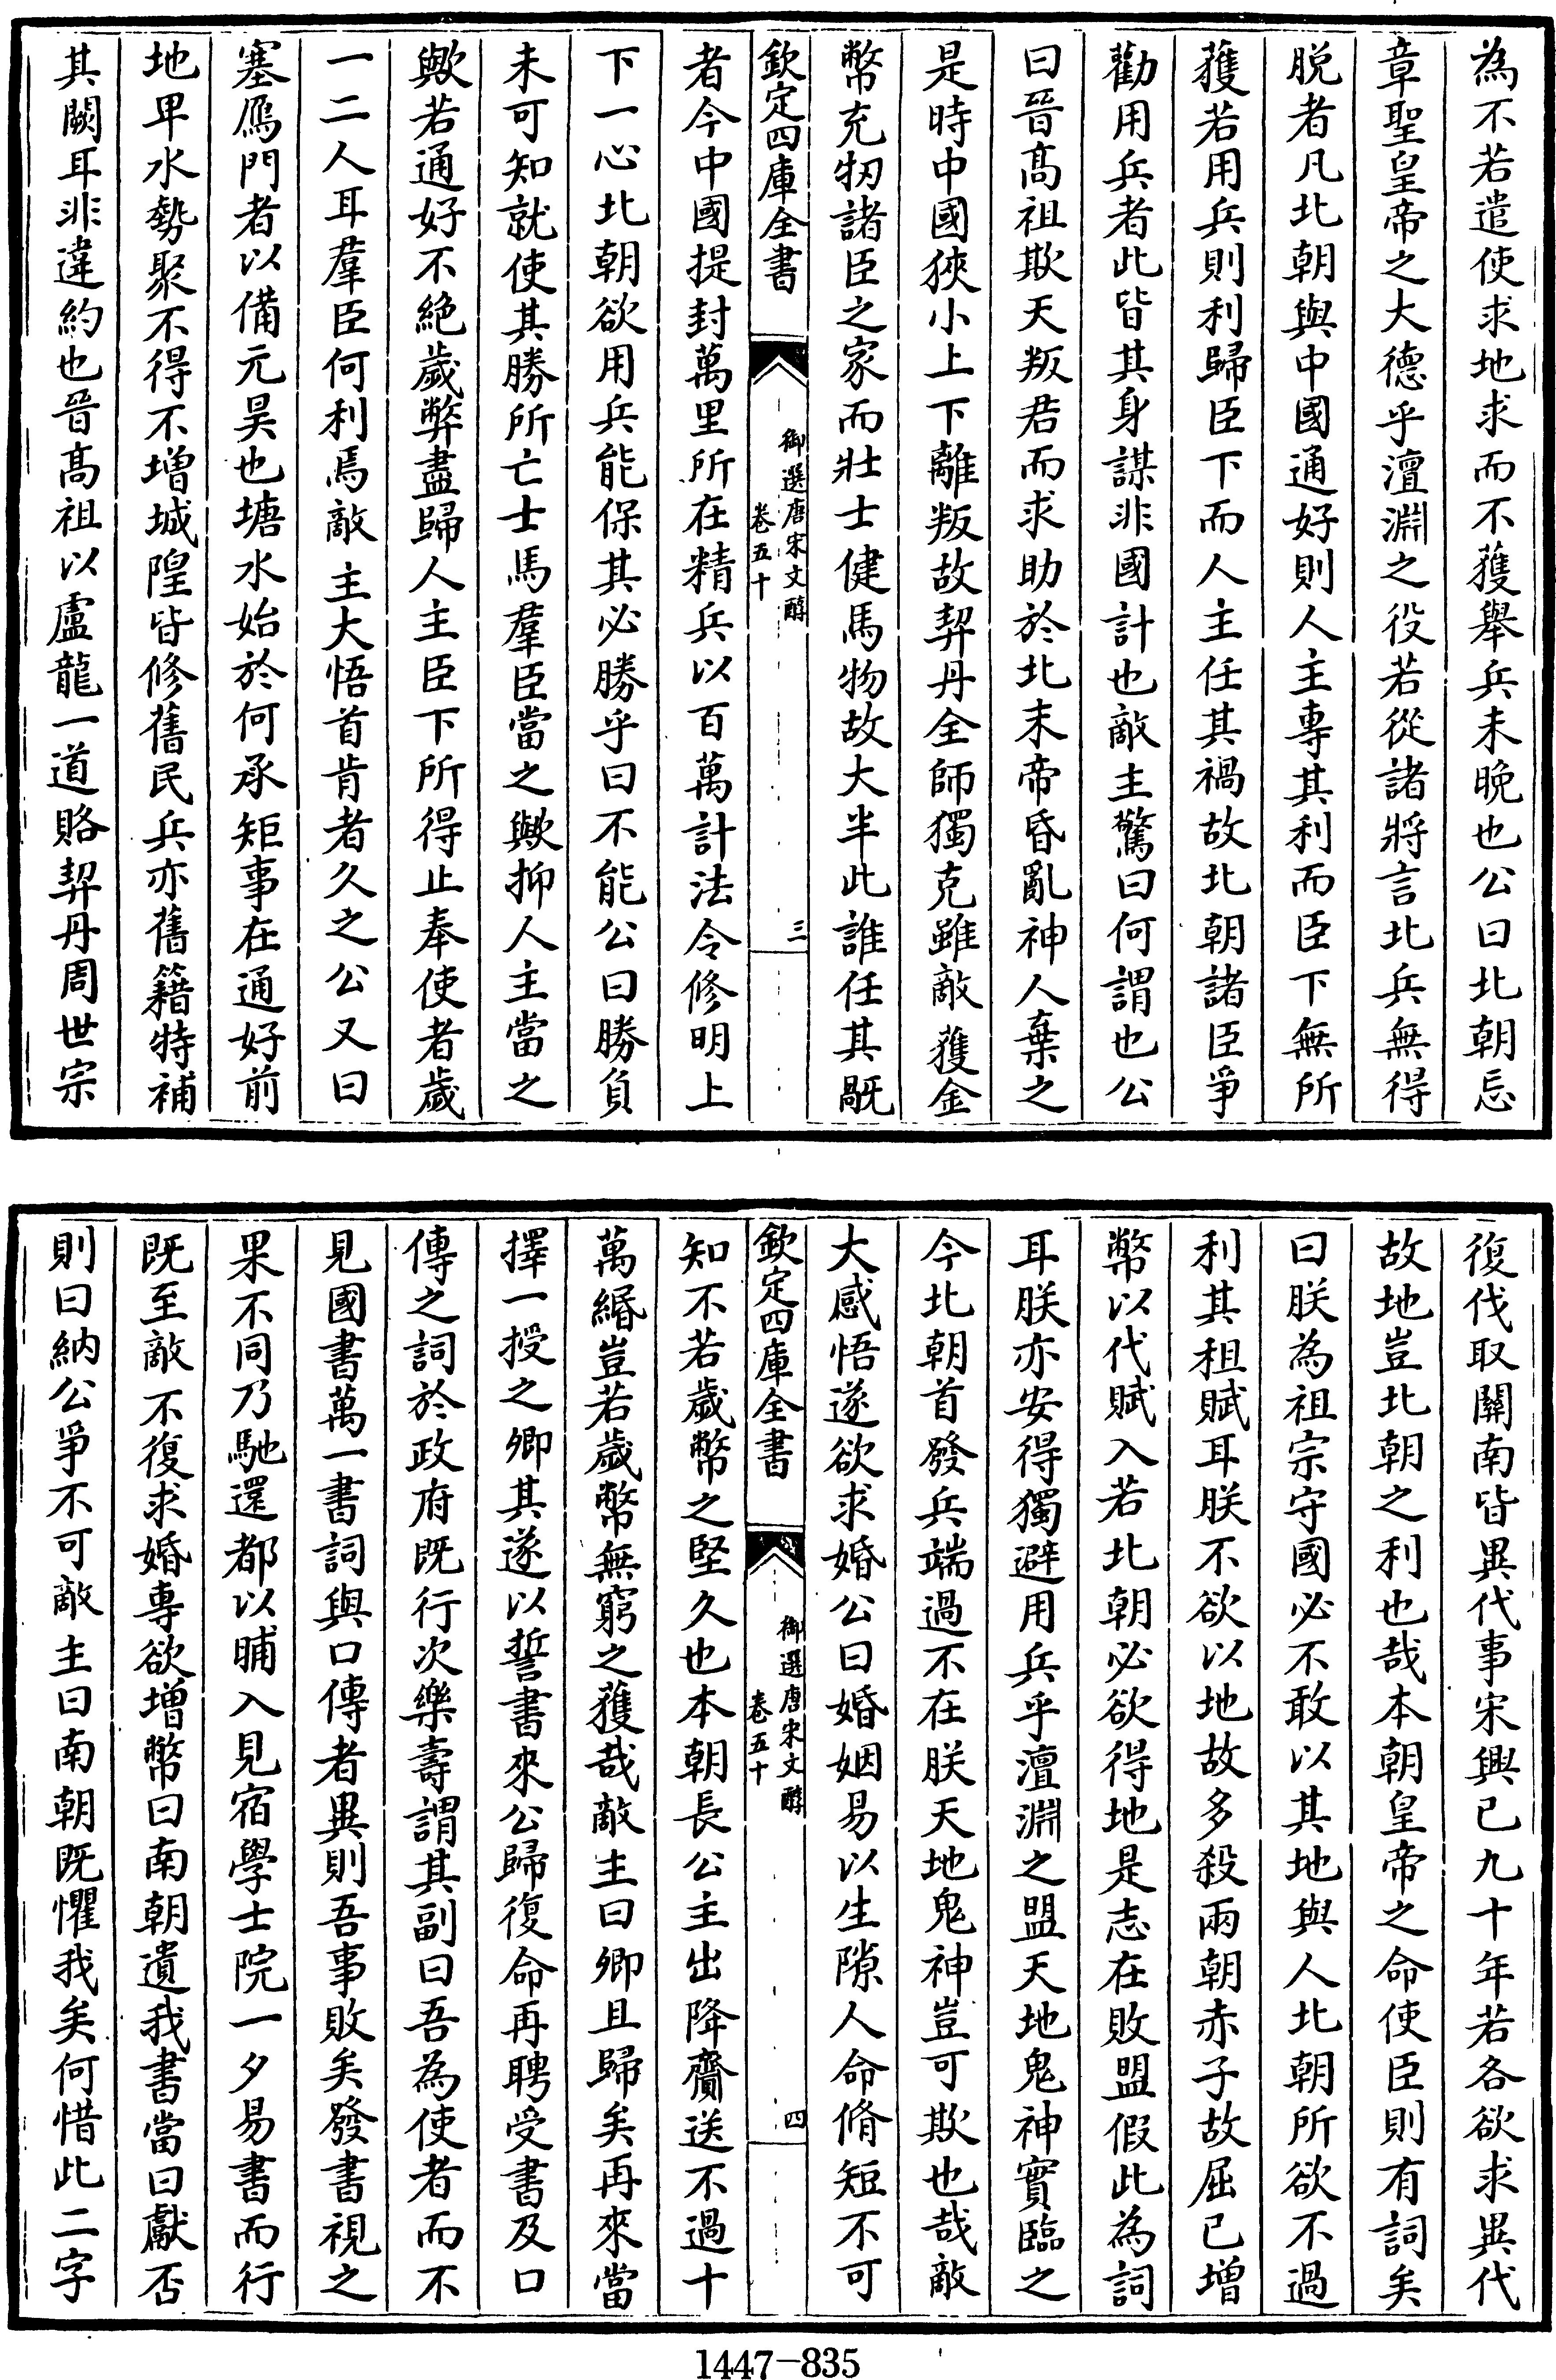 為不若遣使求地求而不獲舉兵未晚也公曰北朝忘
章聖皇帝之大德乎澶淵之役若從諸將言北兵無得
脱者凡北朝與中國通好則人主專其利而臣下無所
獲若用兵則利歸臣下而人主任其禍故北朝諸臣爭
勸用兵者此皆其身謀非國計也敵主驚曰何謂也公
曰晉髙祖欺天叛君而求助於北末帝昏亂神人棄之
是時中國狹小上下離叛故契丹全師獨克雖敵獲金
幣充牣諸臣之家而壯士健馬物故大半此誰任其禍
欽定四庫全書
御選唐宋文醇
卷五十
三
者今中國提封萬里所在精兵以百萬計法令修明上
下一心北朝欲用兵能保其必勝乎曰不能公曰勝負
未可知就使其勝所亡士馬羣臣當之歟抑人主當之
歟若通好不絶歲弊盡歸人主臣下所得止奉使者歲
一二人耳羣臣何利焉敵主大悟首肯者久之公又曰
塞鴈門者以備元昊也塘水始於何承矩事在通好前
地卑水勢聚不得不増城隍皆修舊民兵亦舊籍特補
其闕耳非違約也晉髙祖以盧龍一道賂契丹周世宗
復伐取關南皆異代事宋興已九十年若各欲求異代
故地豈北朝之利也哉本朝皇帝之命使臣則有詞矣
曰朕為祖宗守國必不敢以其地與人北朝所欲不過
利其租賦耳朕不欲以地故多殺兩朝赤子故屈已增
幣以代賦入若北朝必欲得地是志在敗盟假此為詞
耳朕亦安得獨避用兵乎澶淵之盟天地鬼神實臨之
今北朝首發兵端過不在朕天地鬼神豈可欺也哉敵
大感悟遂欲求婚公曰婚姻易以生隙人命脩短不可
欽定四庫全書
御選唐宋文醇
卷五十
四
知不若歲幣之堅久也本朝長公主出降齎送不過十
萬緡豈若歲幣無窮之獲哉敵主曰卿且歸矣再來當
擇一授之卿其遂以誓書來公歸復命再聘受書及口
傳之詞於政府既行次樂壽謂其副曰吾為使者而不
見國書萬一書詞與口傳者異則吾事敗矣發書視之
果不同乃馳還都以晡入見宿學士院一夕易書而行
既至敵不復求婚專欲増幣曰南朝遺我書當曰獻否
則曰納公爭不可敵主曰南朝既懼我矣何惜此二字
1447-835